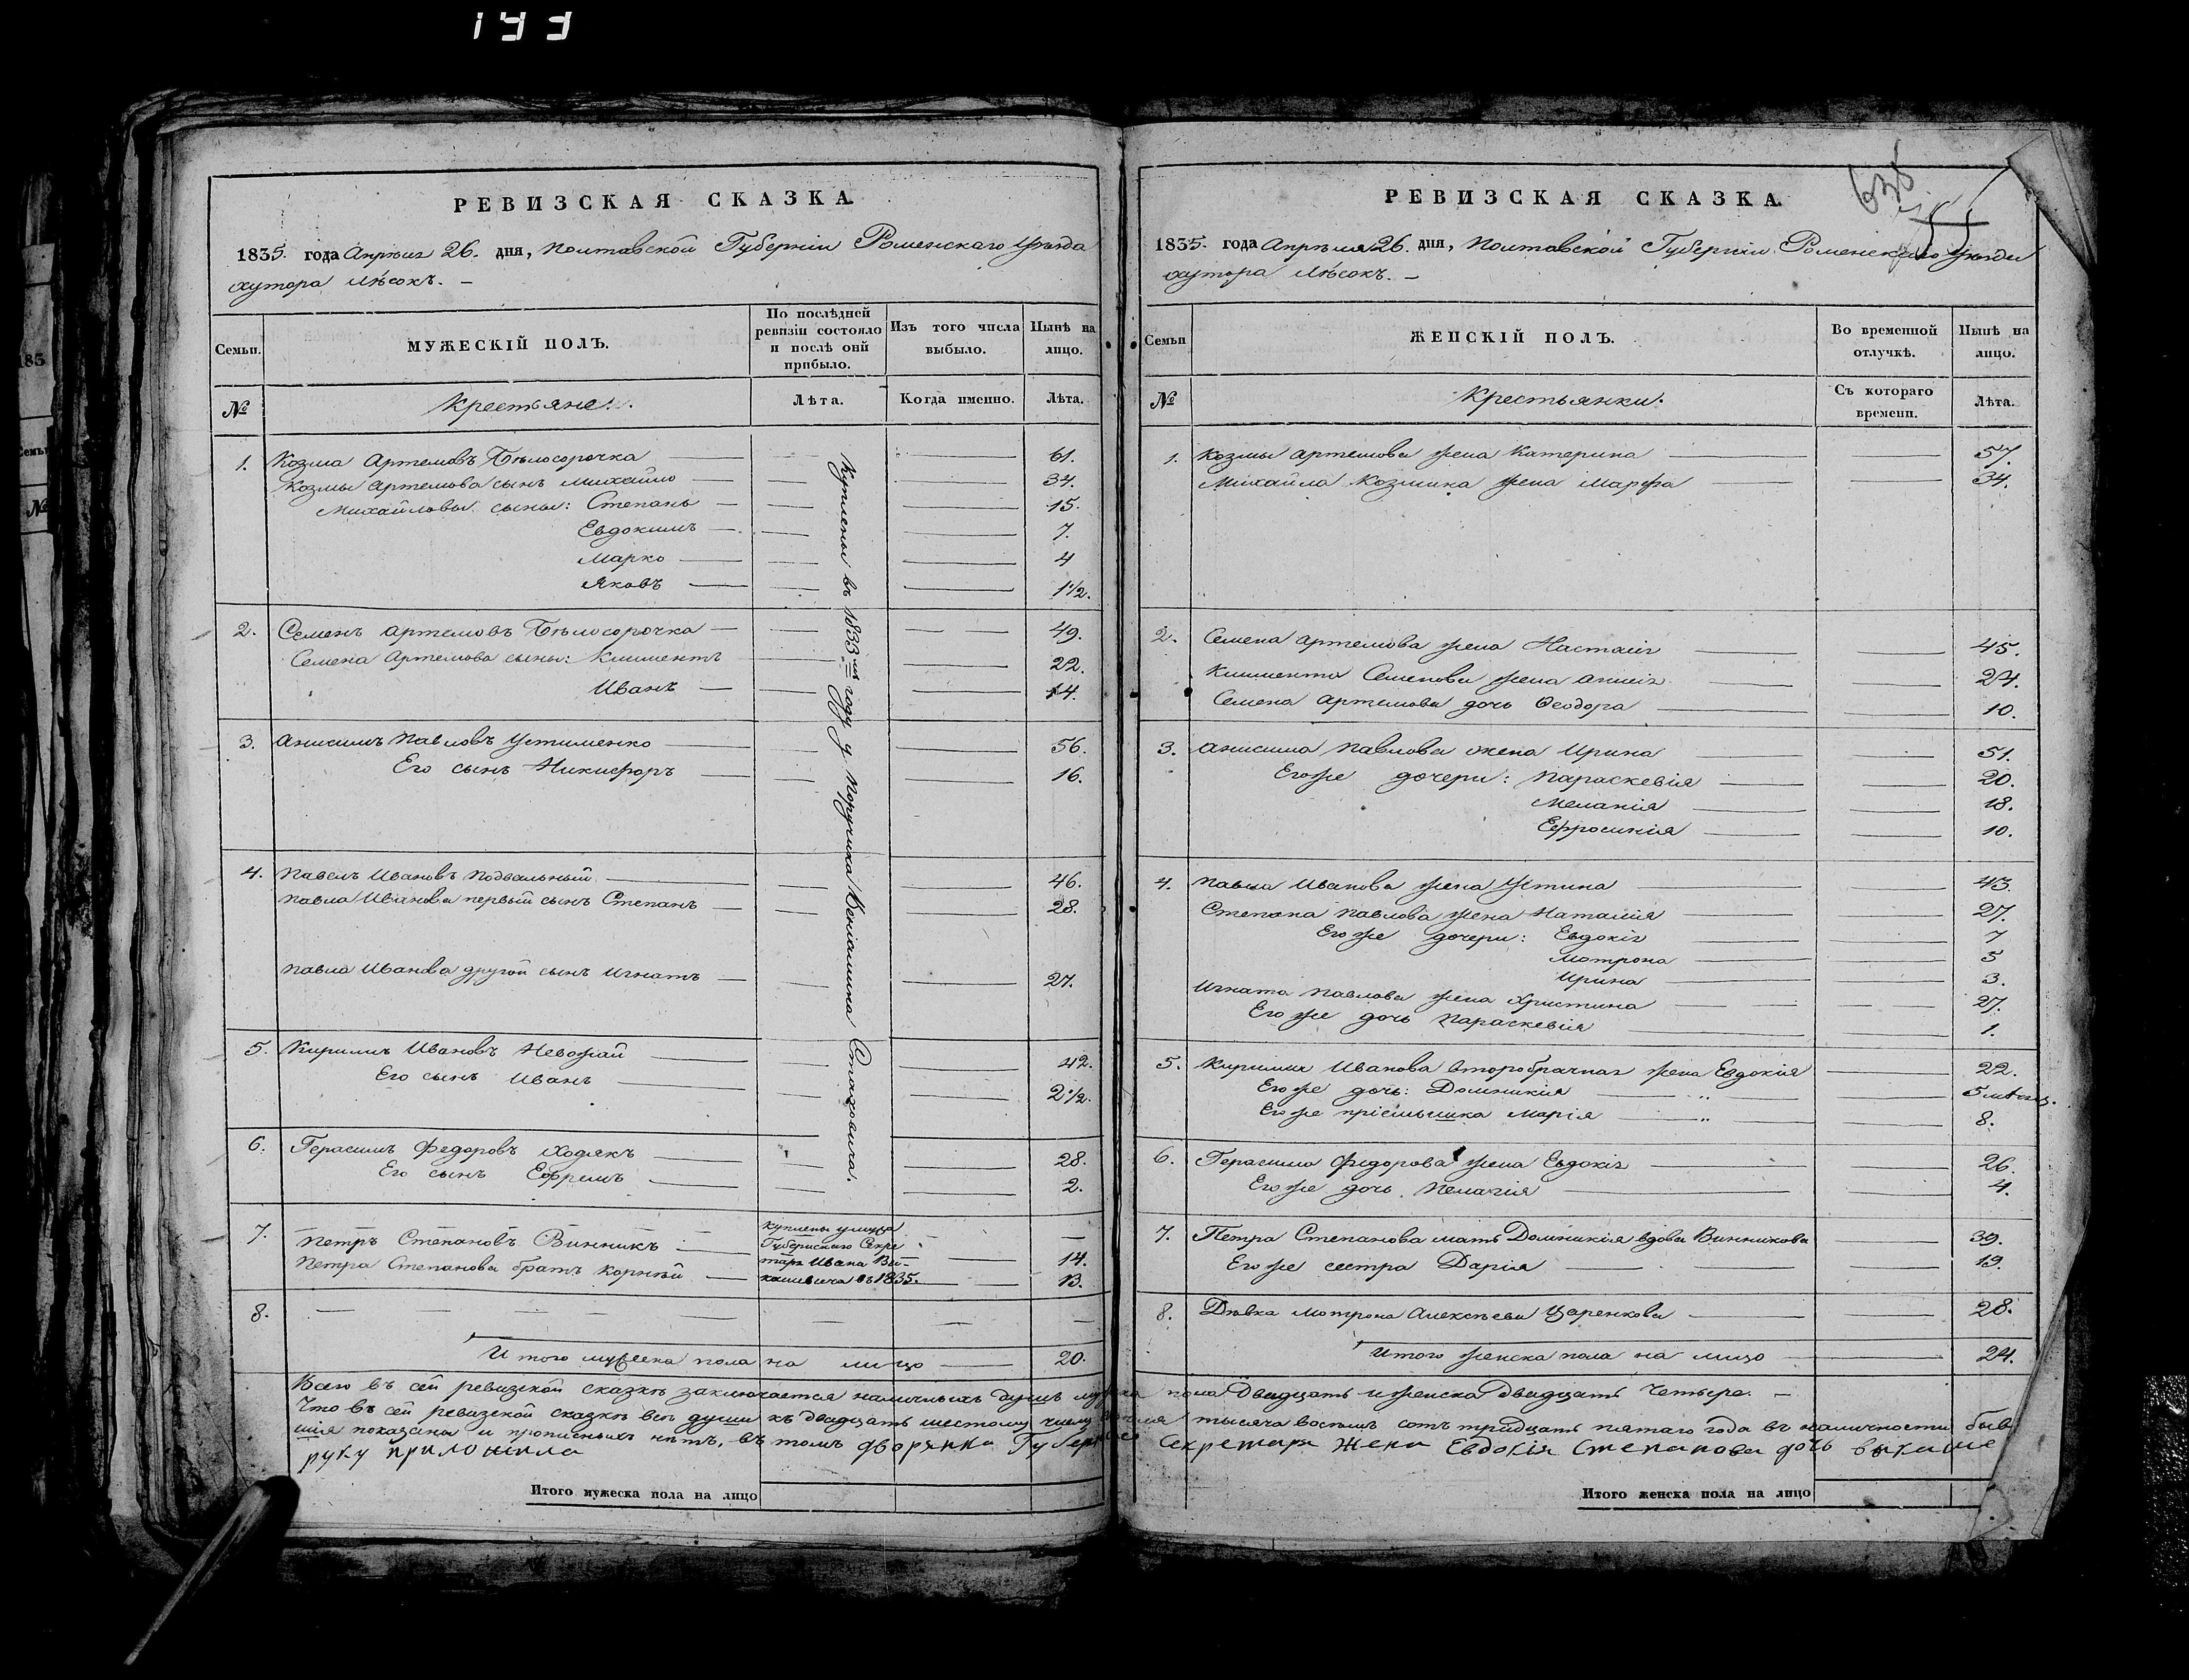 133
РЕВИЗСКАЯ СКАЗКА
1835. года Апрѣля 26. дня, Полтавской Губерніи Роменскаго уѣзда
хутора Лѣсокъ. –
Семьи.
МУЖЕСКІЙ ПОЛЪ.
По послѣдней ревизіи состояло и послѣ оній прибыло.
Изъ того числа выбыло.
Нынѣ на лицо.
№
Крестьяне.
Лѣта.
Когда именно.
Лѣта.
1. Козма Артемовъ Бѣлосорочка 61.
Козмы Артемова сынъ Михайло 34.
Михайловы сыны: Степанъ 15.
Евдокимъ 7.
Марко 4
Яковъ 1 1/2.
2. Семенъ Артемовъ Бѣлосорочка 49.
Семена Артемова сыны: Климентъ 22.
Иванъ 14.
3. Анисимъ Павловъ Устименко 56.
Его сынъ Никифоръ 16.
4. Павелъ Ивановъ Подвальный 46.
Павла Иванова первый сынъ Степанъ 28.
Павла Иванова другой сынъ Игнатъ 27.
5. Кирилъ Ивановъ Неважай 42.
Его сынъ Иванъ 2 1/2.
6. Герасимъ Федоровъ Ходякъ 28.
Его сынъ Ефремъ 2.
Куплены въ 1833мъ году у Поручика Веніамина Стаховича.
7. Петръ Степановъ Винникъ 14.
Петра Степанова братъ Корнѣй 13.
куплены у
Губернскаго Секре
таря Ивана
въ 1835.
8.
Итого мужеска пола на лицо 20.
РЕВИЗСКАЯ СКАЗКА.
1835. года Апрѣля 26. дня, Полтавской Губерніи Роменскаго уѣзда
хутора Лѣсокъ. –
Семьи
ЖЕНСКІЙ ПОЛЪ.
Во временной отлучкѣ.
Нынѣ на лицо.
№
Крестьянки.
Съ котораго времени.
Лѣта.
1. Козмы Артемова жена Катерина 57.
Михайла Козмина жена Марфа 34.
2. Семена Артемова жена Настасія 45.
Климента Семенова жена Анна 24.
Семена Артемова дочь Феодора 10.
3. Анисима Павлова жена Ирина 51.
Его же дочери: Параскевія 20.
Меланія 18.
Ефросинія 10.
4. Павла Иванова жена Устина 43.
Степана Павлова жена Наталія 27.
Его же дочери: Евдокія 7
Мотрона 5
Ирина 3.
Игната Павлова жена Христина 27.
Его же дочь Параскевія 1.
5. Кирила Иванова второбрачная жена Евдокія 22.
Его же дочь: Домникія 5 мѣсяц.
Его же пріемышка Марія 8.
6. Герасима Федорова жена Евдокія 26.
Его же дочь Пелагія 4.
7. Петра Степанова мать Домникія вдова Винникова 39.
Его же сестра Дарія 19.
8. Дѣвка Мотрона Алексѣева Царенкова 28.
Итого женска пола на лицо 24.
Всего въ сей ревизской сказкѣ заключается наличныхъ душъ мужска пола двадцать и женска двадцать четыре. –
Что въ сей ревизской сказкѣ всѣ души къ двадцать шестому числу Апрѣля тысяча восемь сотъ тридцать пятаго года въ наличности быв
шія показаны и прописныхъ нѣтъ, въ томъ дворянка Губернскаго Секретаря Жена Евдокія Степанова дочь
руку приложила
Итого мужеска пола на лицо
Итого женска пола на лицо